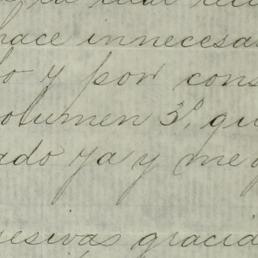 hace innecesar
o y por cons
olumen 3º, qu
ado ya y me q
esivas gracia